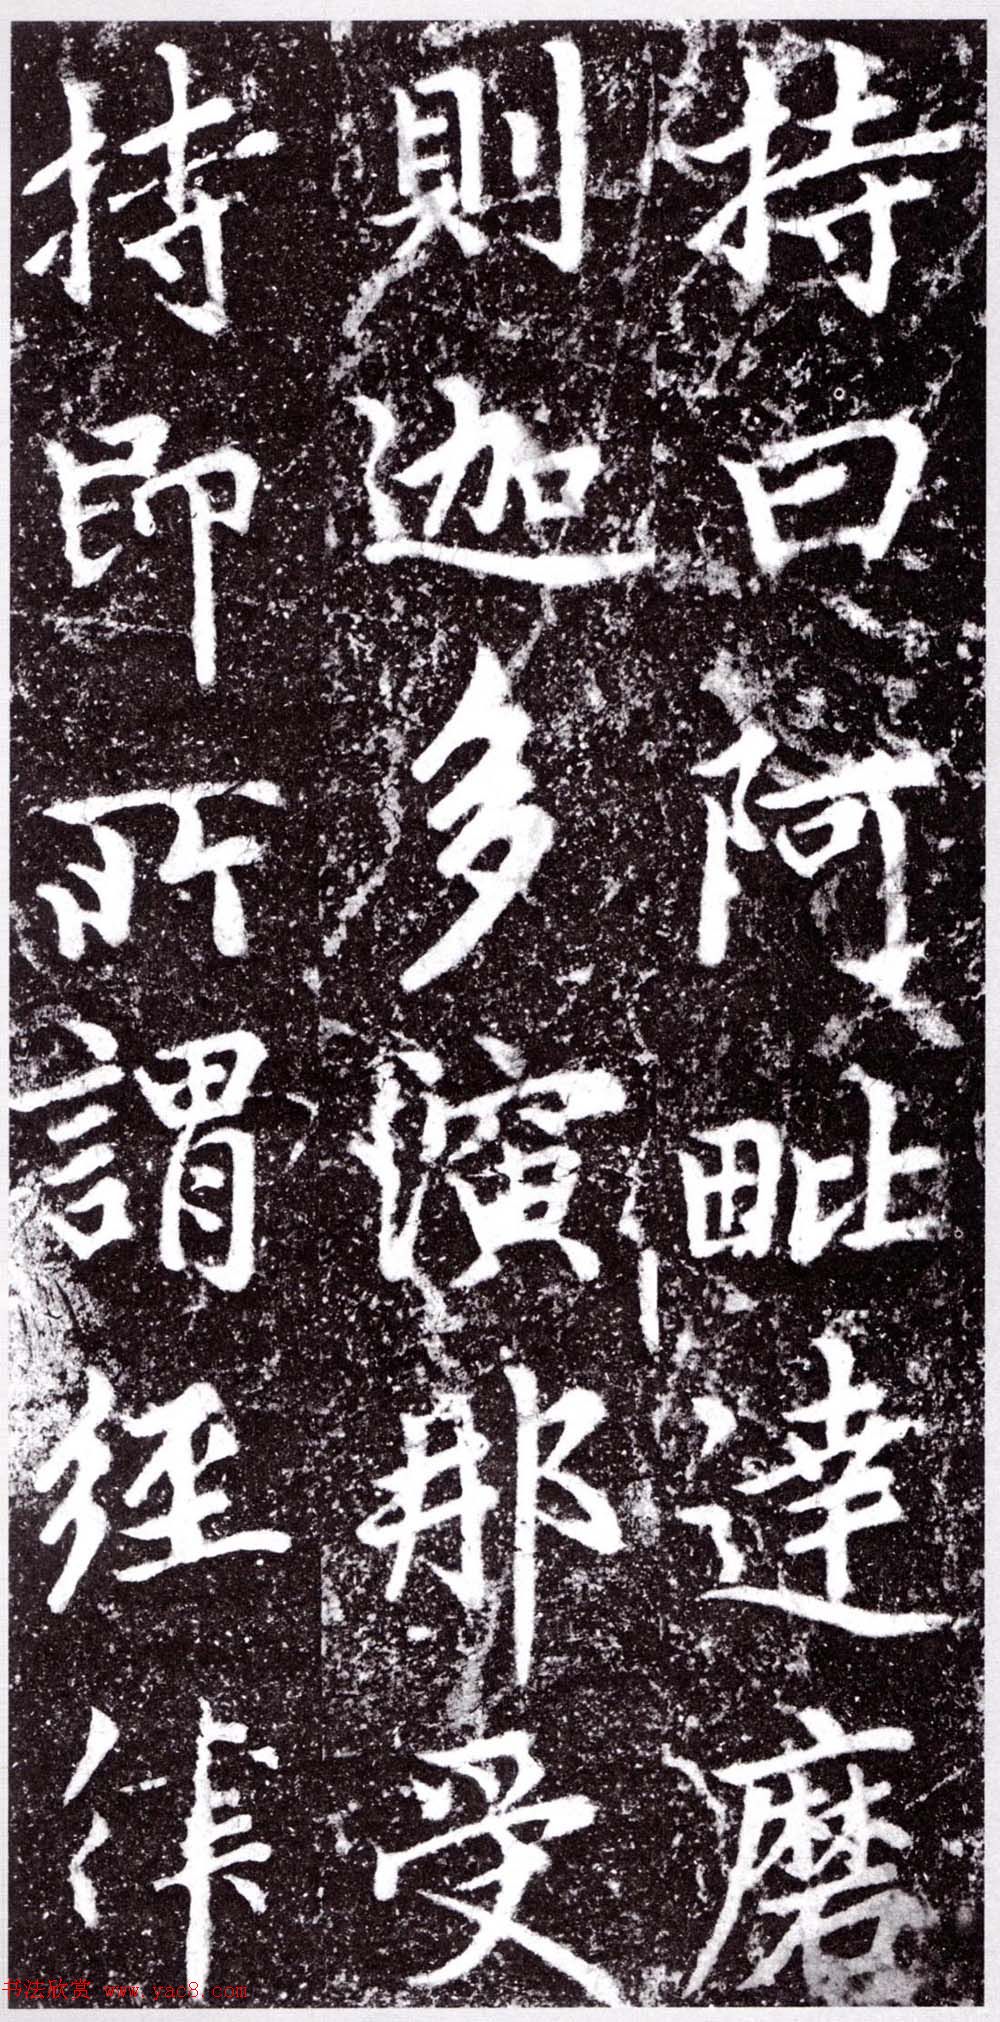 持曰阿毗達磨
則迦多演那受
持師所謂經作
书法欣赏 www.yac8.com